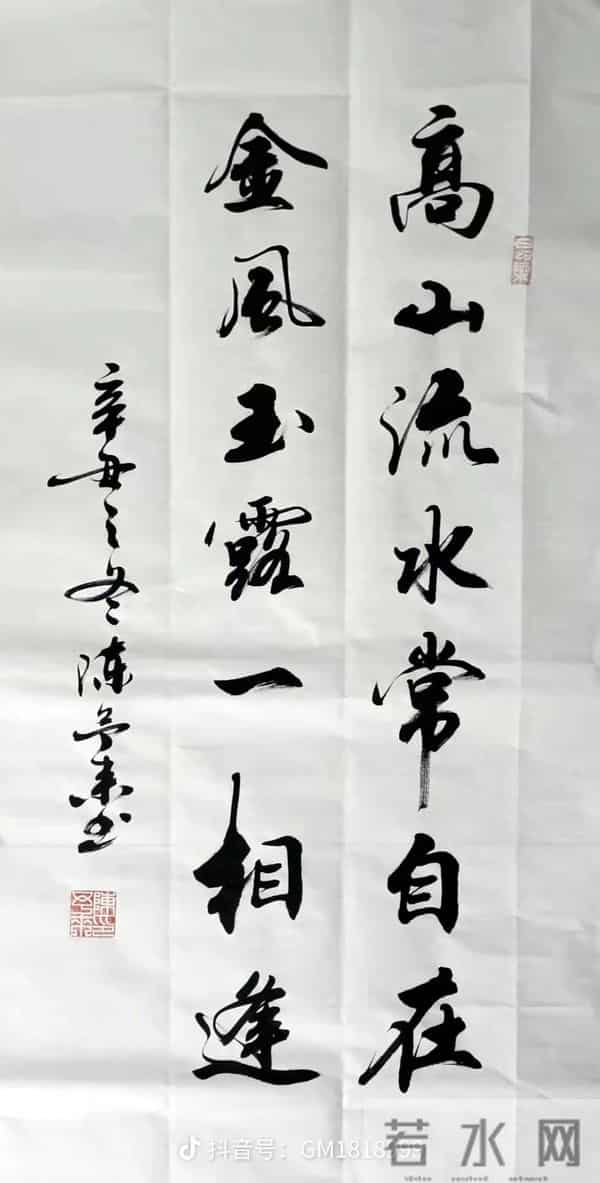 高山流水常自在
金風玉露一相逢
辛丑之冬陳
書
抖音号：GM1818
若水网